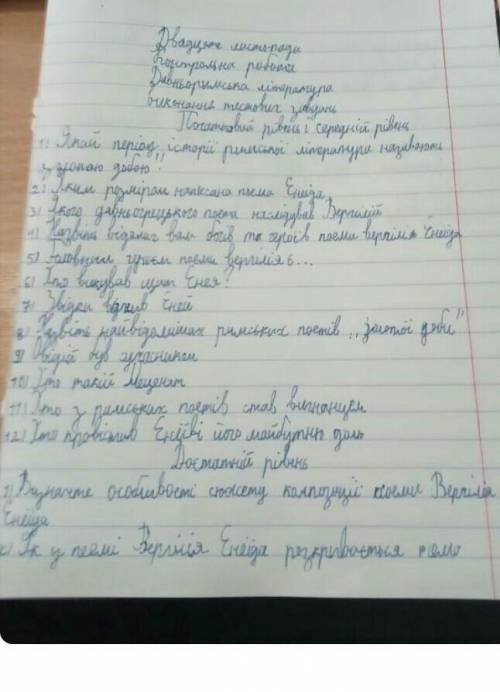 Двадцяте листопада
Контрольна робота
Давньоримська література
виконання тестових завдань
Початковий рівень і середній рівень
1) Який період історії римської літератури називають
"золотою добою"
2) Яким розміром написана поема Енеїда
3) Якого давньогрецького поета наслідував Вергілій
4) Назвіть відомих вам богів та героїв поеми вергілія Енеїда
5) Головним героєм поеми вергілія є...
6) Хто викував щит Енея?
7) Звідки відплив Еней
8) Назвіть найвідоміших римських поетів „золотої доби"
9) Овідій був сучасником
10) Хто такий Меценат
11) Хто з римських поетів став вигнанцем
12) Хто провістив Енеєві його майбутню долю
Достатній рівень
1) Визначте особливості сюжету композиції поеми Вергілія
Енеїда
2) Як у поемі Вергілія Енеїда розкривається тема